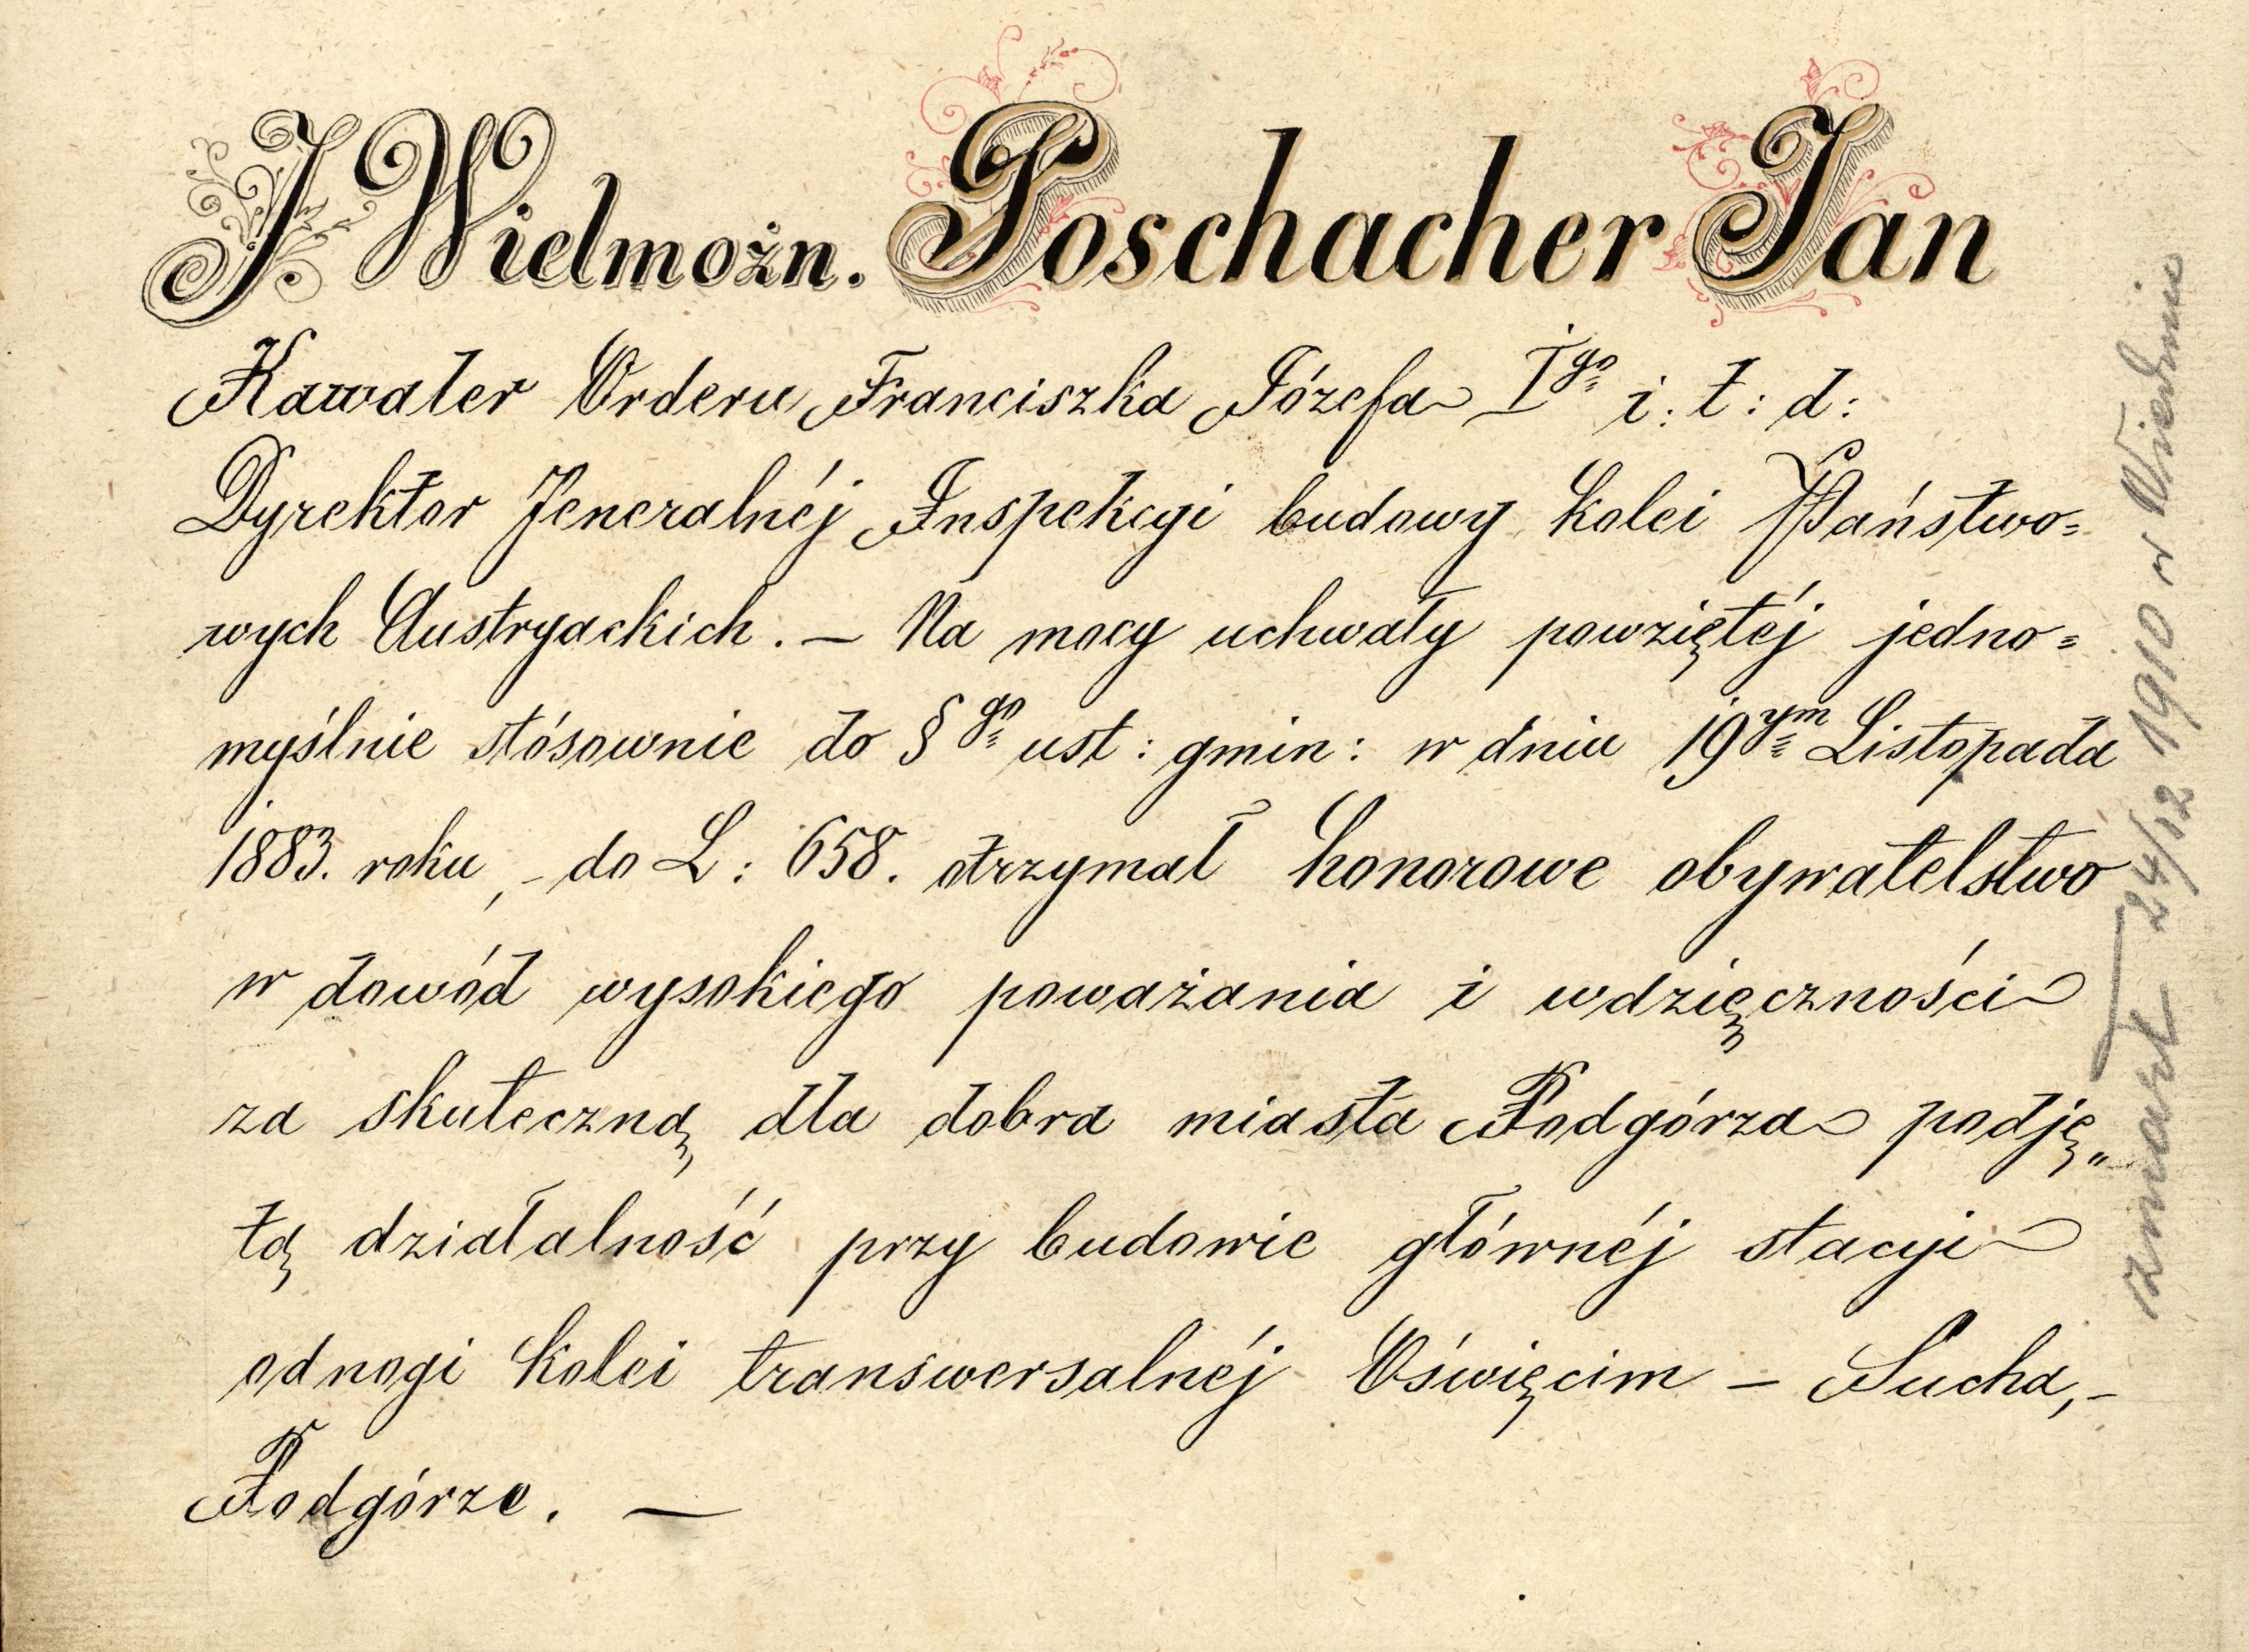 J Wielmożn. Poschacher Jan
Kawaler Orderu Franciszka Józefa Igo i: t: d:
Dyrektor Jeneralnéj Inspekcyi budowy kolei Państwo=
wych Austryackich. — Na mocy uchwały powziętéj jedno=
myślnie stósownie do § 8go ust: gmin: w dniu 19ym Listopada
1883. roku, – do L: 658. otrzymał honorowe obywatelstwo
w dowód wysokiego poważania i wdzięczności
za skuteczną dla dobra miasta Podgórza podję„
tą działalność przy budowie głównéj stacyi
odnogi kolei transwersalnéj Oświęcim – Sucha, –
Podgórze. —
zmarł 24/12 1910 w Wiedniu